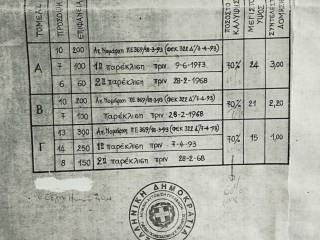 ΤΟΜΕΑΣ ΠΡΟΣΩΠΟ ΕΠΙΦΑΝΕΙΑ ΠΟΣΟΣΤΟ ΚΑΛΥΨΗΣ ΜΕΓΙΣΤΟ ΥΨΟΣ ΣΥΝΤΕΛΕΣΤ ΔΟΜΗΣ
Α 10 200 Απ. Νομάρχη ΠΕ369/18-3-93 (ΦΕΚ 322Δ/7-4-93) 70% 24 3,00
7 100 1η παρέκλιση πριν 9-6-1973
6 60 2α παρέκλιση πριν 28-2-1968
Β 10 200 Απ. Νομάρχη ΠΕ369/18-3-93 (ΦΕΚ 322Δ/7-4-93) 70% 21 2,20
7 100 παρέκλιση πριν 28-2-1968
Γ 13 300 Απ. Νομάρχη ΠΕ369/18-3-93 (ΦΕΚ 322Δ/7-4-93) 70% 15 1,00
14 250 1η παρέκλιση πριν 7-4-93
8 150 2α παρέκλιση πριν 28-2-68
ΕΛΛΗΝΙΚΗ ΔΗΜΟΚΡΑΤΙΑ